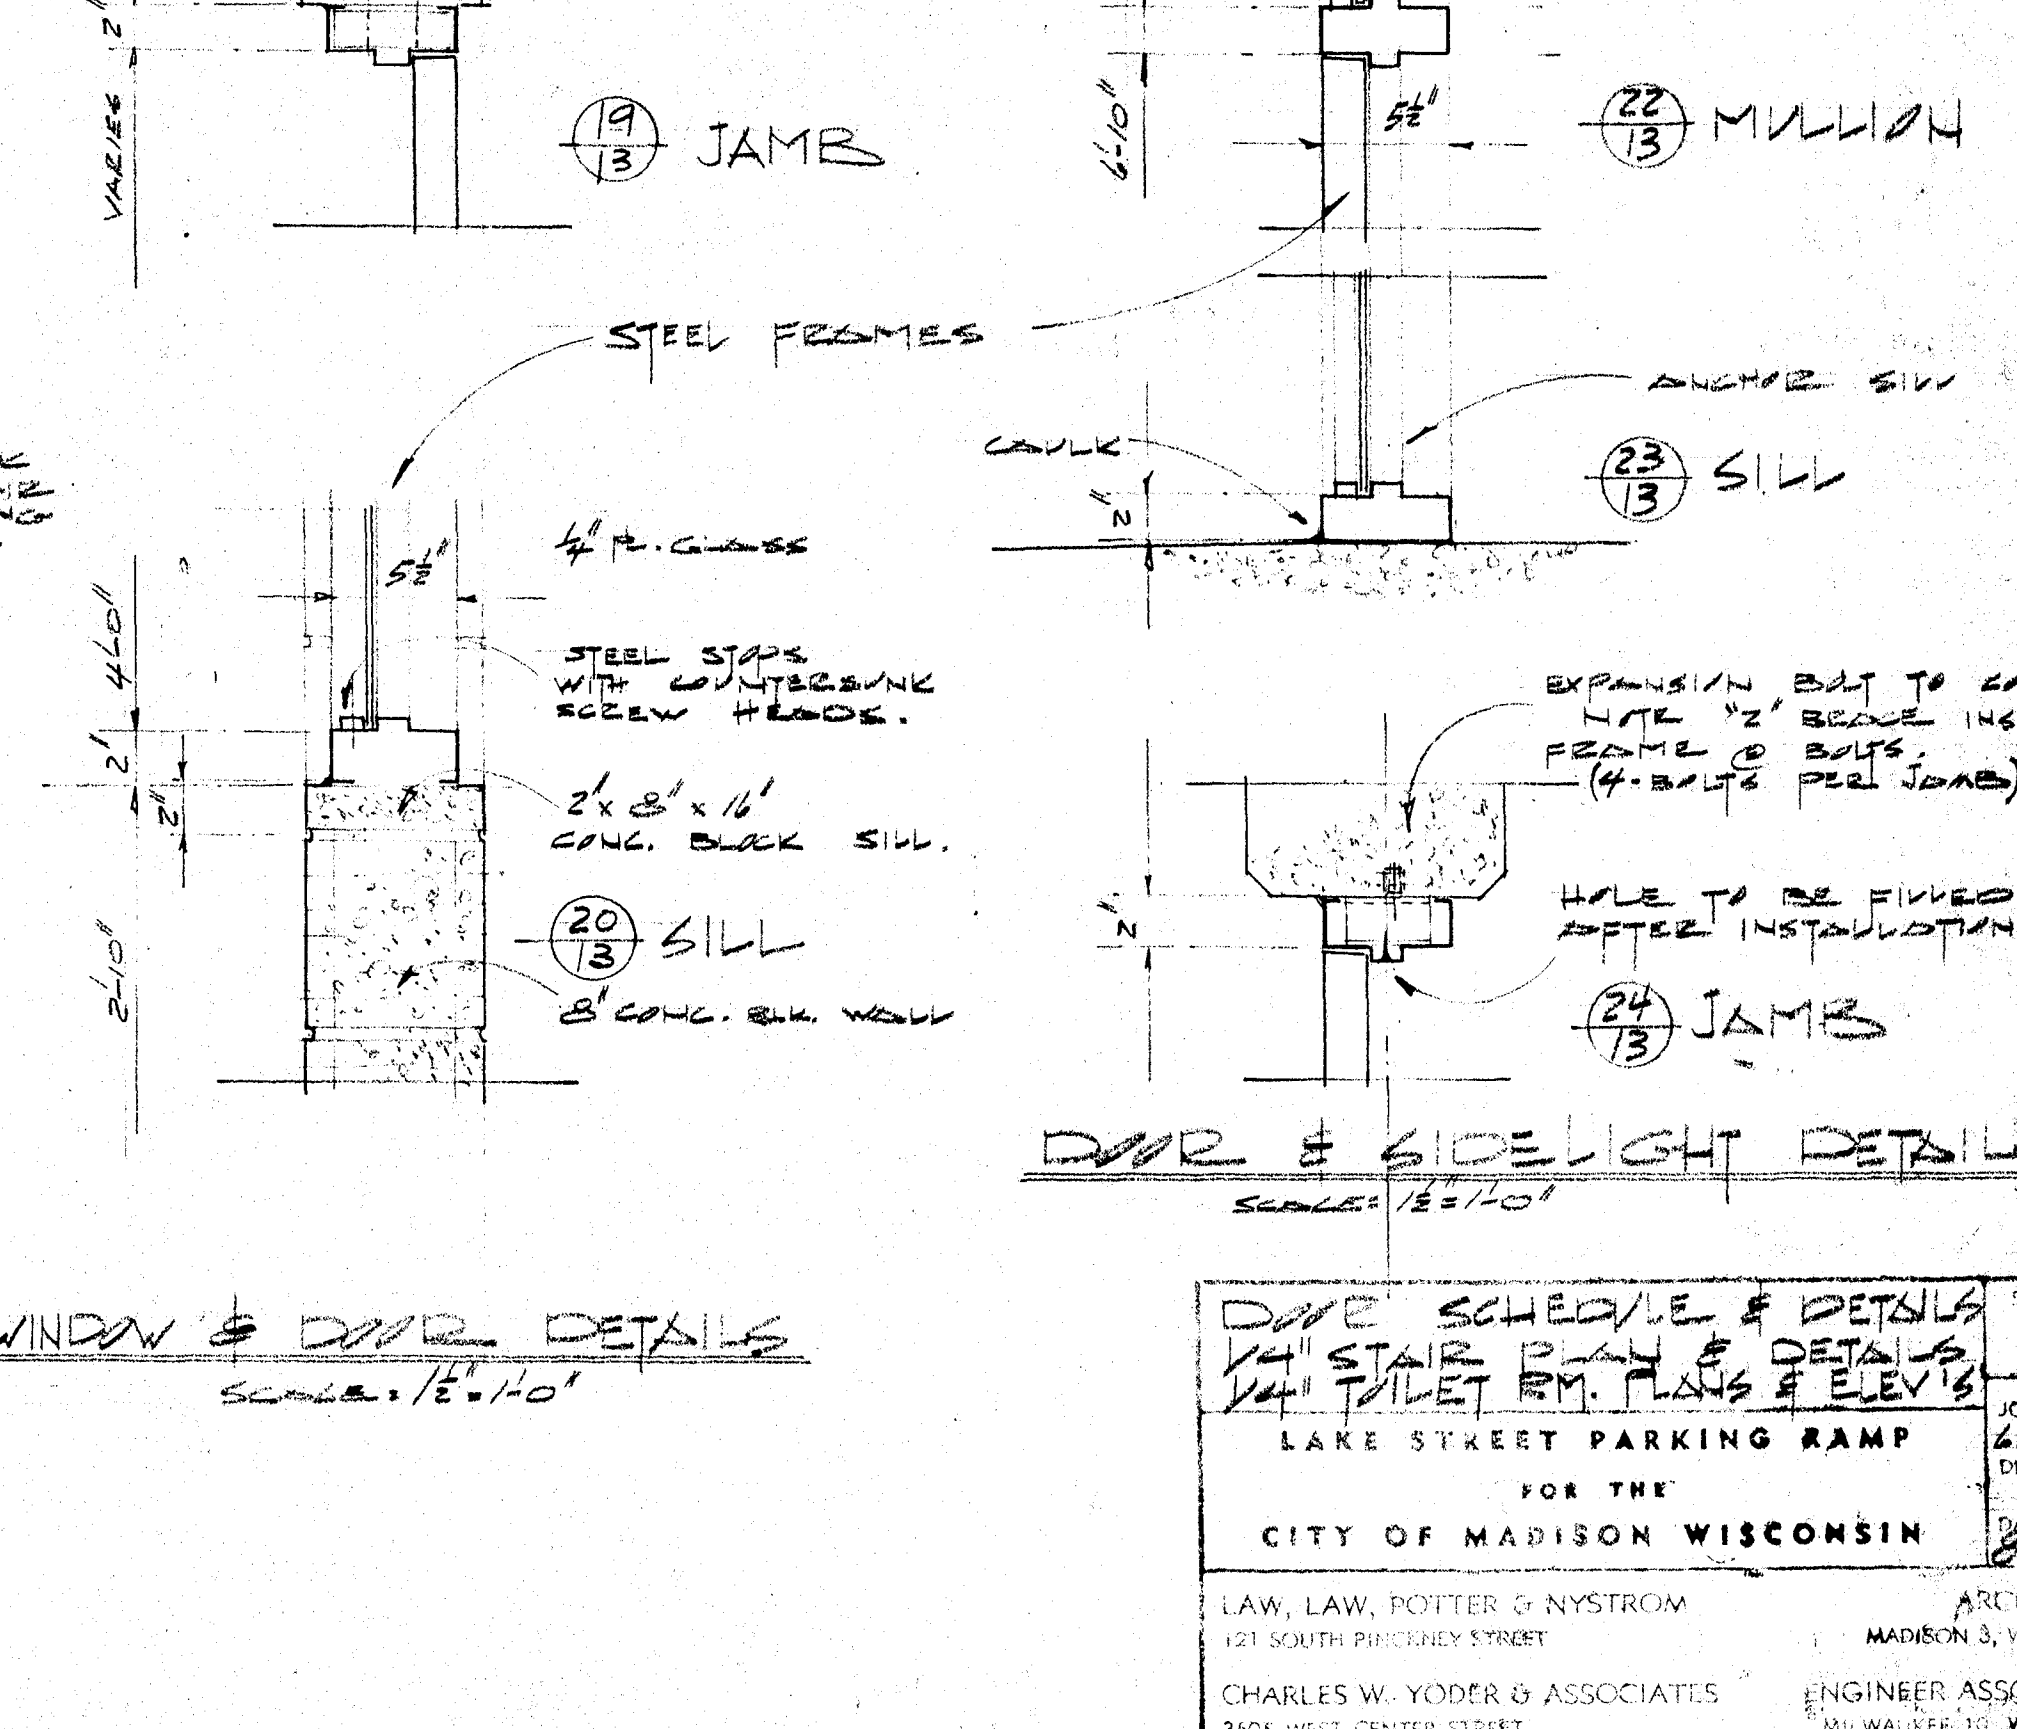 2"
VARIES
19
13
JAMB
6'-10"
5½"
22
13
MULLION
STEEL FRAMES
ANCHOR SILL
CAULK
23
13
SILL
2"
¼" PL. GLASS
5½"
4'-0"
STEEL STOPS
WITH COUNTERSUNK
SCREW HEADS.
2"
2"
2" x 8" x 16"
CONC. BLOCK SILL.
20
13
SILL
2'-10"
8" CONC. BLK. WALL
EXPANSION BOLT TO
NOTE "Z" BRACE
FRAME @ BOLTS.
(4-BOLTS PER JAMB)
2"
HOLE TO BE FILLED
AFTER INSTALLATION
24
13
JAMB
DOOR & SIDELIGHT DETAIL
SCALE: 1½"=1'-0"
WINDOW & DOOR DETAILS
SCALE: 1½"=1'-0"
DOOR SCHEDULE & DETAILS
1/4" STAIR PLAN & DETAILS
1/4" TOILET RM. PLANS & ELEV'S
LAKE STREET PARKING RAMP
FOR THE
CITY OF MADISON WISCONSIN
LAW, LAW, POTTER & NYSTROM
121 SOUTH PINCKNEY STREET
MADISON 3,
CHARLES W. YODER & ASSOCIATES
ENGINEER
WEST CENTER STREET
MILWAUKEE 10,